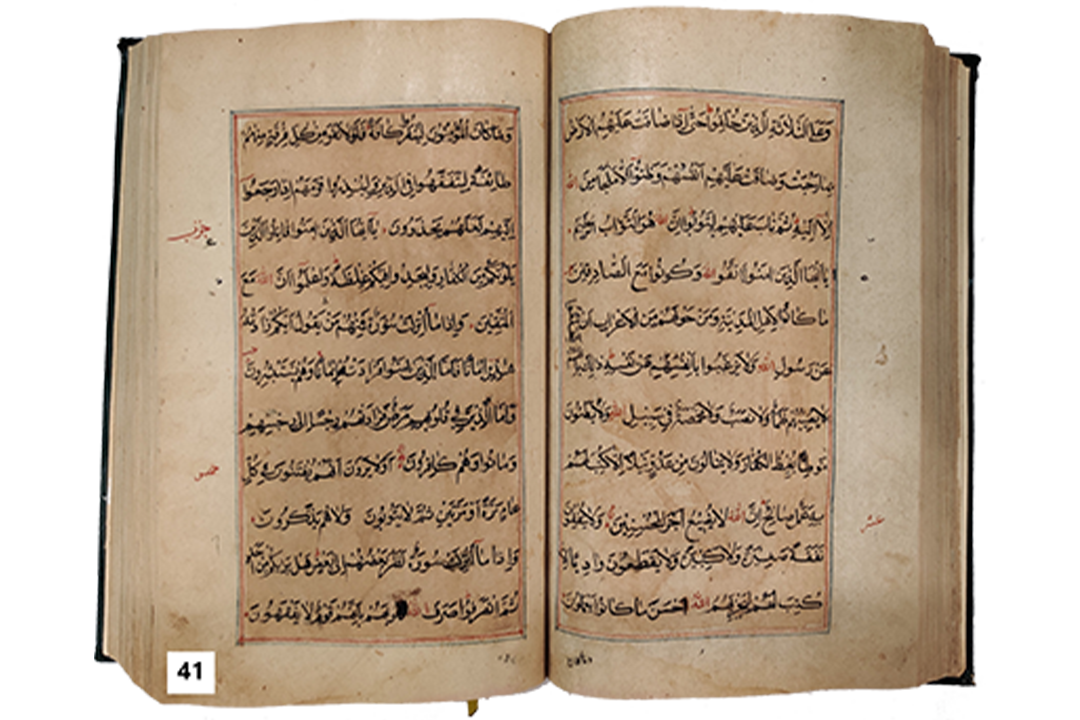 وعلى الثلاثة الذين خلفوا حتى اذا ضاقت عليهم الارض
بما رحبت وضاقت عليهم انفسهم وظنوا ان لا ملجا من الله
الا اليه ثم تاب عليهم ليتوبوا ان الله هو التواب الرحيم
يا ايها الذين امنوا اتقوا الله وكونوا مع الصادقين
ما كان لاهل المدينة ومن حولهم من الاعراب ان
عن رسول الله ولا يرغبوا بانفسهم عن نفسه ذلك بانهم
لا يصيبهم ظما ولا نصب ولا مخمصة في سبيل الله ولا يطئون
موطئا يغيظ الكفار ولا ينالون من عدو نيلا الا كتب لهم
به عمل صالح ان الله لا يضيع اجر المحسنين ولا ينفقون
نفقة صغيرة ولا كبيرة ولا يقطعون واديا الا
كتب لهم ليجزيهم الله احسن ما كانوا يعملون
عشر
وما كان المؤمنون لينفروا كافة فلولا نفر من كل فرقة منهم
طائفة ليتفقهوا في الدين ولينذروا قومهم اذا رجعوا
اليهم لعلهم يحذرون يا ايها الذين امنوا قاتلوا الذين
يلونكم من الكفار وليجدوا فيكم غلظة واعلموا ان الله مع
المتقين واذا ما انزلت سورة فمنهم من يقول ايكم زادته
هذه ايمانا فاما الذين امنوا فزادتهم ايمانا وهم يستبشرون
واما الذين في قلوبهم مرض فزادتهم رجسا الى رجسهم
وماتوا وهم كافرون اولا يرون انهم يفتنون في كل
عام مرة او مرتين ثم لا يتوبون ولا هم يذكرون
واذا ما انزلت سورة نظر بعضهم الى بعض هل يريكم من احد
ثم انصرفوا صرف الله قلوبهم بانهم قوم لا يفقهون
حزب
خمس
41